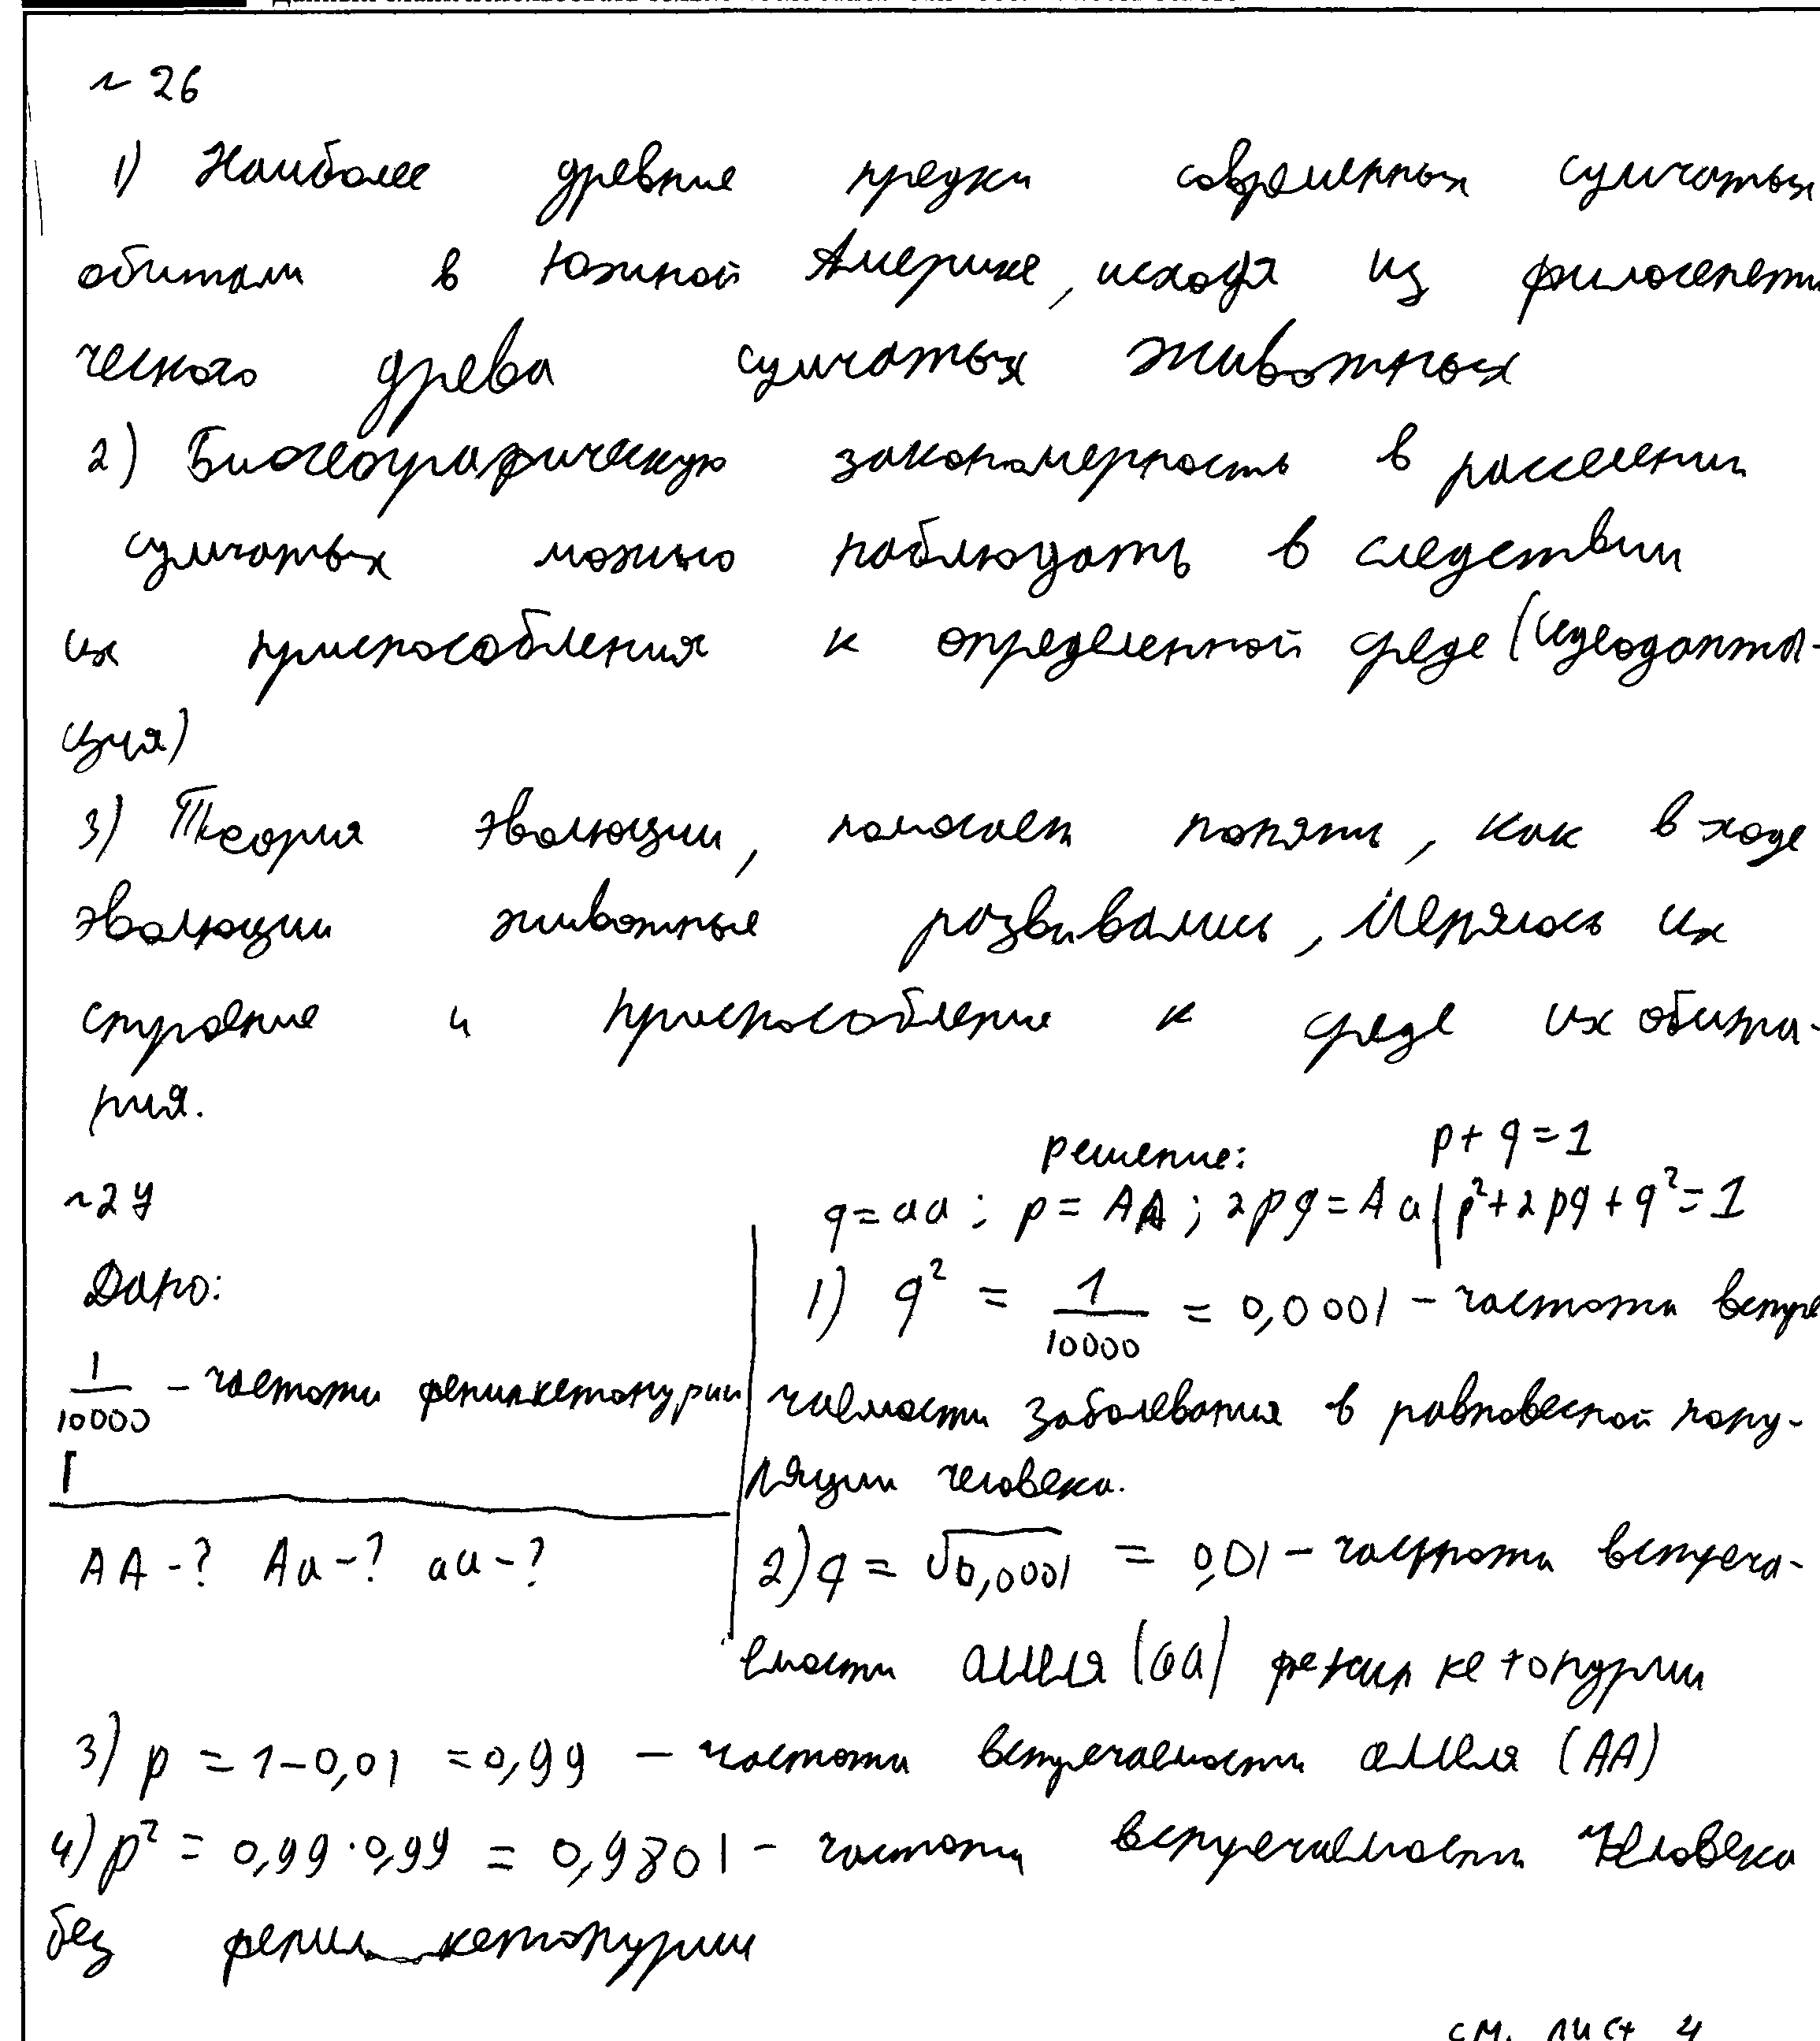 ~ 26
1) Наиболее древние предки современных сумчатых
обитали в Южной Америке, исходя из филогенети
ческого древа сумчатых животных
2) Биогеографическую закономерность в расселении
сумчатых можно наблюдать в следствии
их приспособления к определенной среде (идеоадапта-
ция)
3) Теория эволюции, помогает понять, как в ходе
эволюции животные развивались, менялось их
строение и приспособление к среде их обита-
ния.
~27
Дано:
1/10000 - частота фенилкетонурии
AA-? Aa-? aa-?
решение: p+q=1
q=aa; p=AA; 2pq=Aa | p²+2pq+q²=1
1) q² = 1/10000 = 0,0001 - частота встре
чаемости заболевания в равновесной попу-
ляции человека.
2) q = √0,0001 = 0,01 - частота встреча-
емости аллеля (aa) фенилкетонурии
3) p = 1-0,01 = 0,99 - частота встречаемости аллеля (AA)
4) p² = 0,99·0,99 = 0,9801 - частота встречаемости человека
без фенилкетонурии
см. лист 4